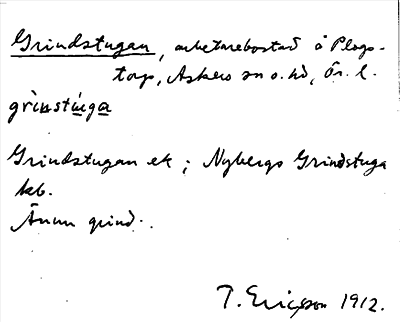 Grindstugan, arbetarebostad å Plogs-
torp, Askers sn o. hd, Ör. l.
grinstúga
Grindstugan ek; Nybergs Grindstuga
kb.
Ännu grind.
T. Ericsson 1912.